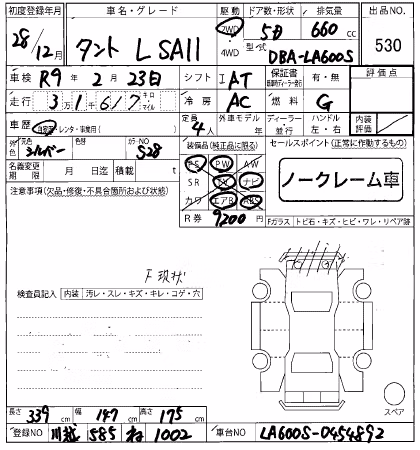 初度登録年月 車名・グレード 駆動 ドア数・形状 排気量 出品NO.
28/12月 タント L SAII 2WD 4WD 5D 660cc 530
型式 DBA-LA600S
車検 R9年 2月 23日 シフト IAT 保証書 有・無 評価点
走行 3万1千617 キロ マイル 冷房 AC 燃料 G
車歴 自家用・レンタ・事業用( ) 定員 4人 外車モデル 年 ディーラー 並行 ハンドル 左・右 内装評価
外色 元色 シルバー 色替 カラーNO S28 装備品(純正品に限る) セールスポイント(正常に作動するもの)
名義変更期限 月 日迄 積載 t PS PW AW
注意事項(欠品・修復・不具合箇所および状態) SR TV ナビ ノークレーム車
カワ エアB ABS
R券 9200円 Fガラス トビ石・キズ・ヒビ・ワレ・リペア跡
F 現状
検査員記入 内装 汚レ・スレ・キズ・キレ・コゲ・穴
スペア
長さ 339cm 幅 147cm 高さ 175cm
登録NO 川越 585 ね 1002 車台NO LA600S-0454892